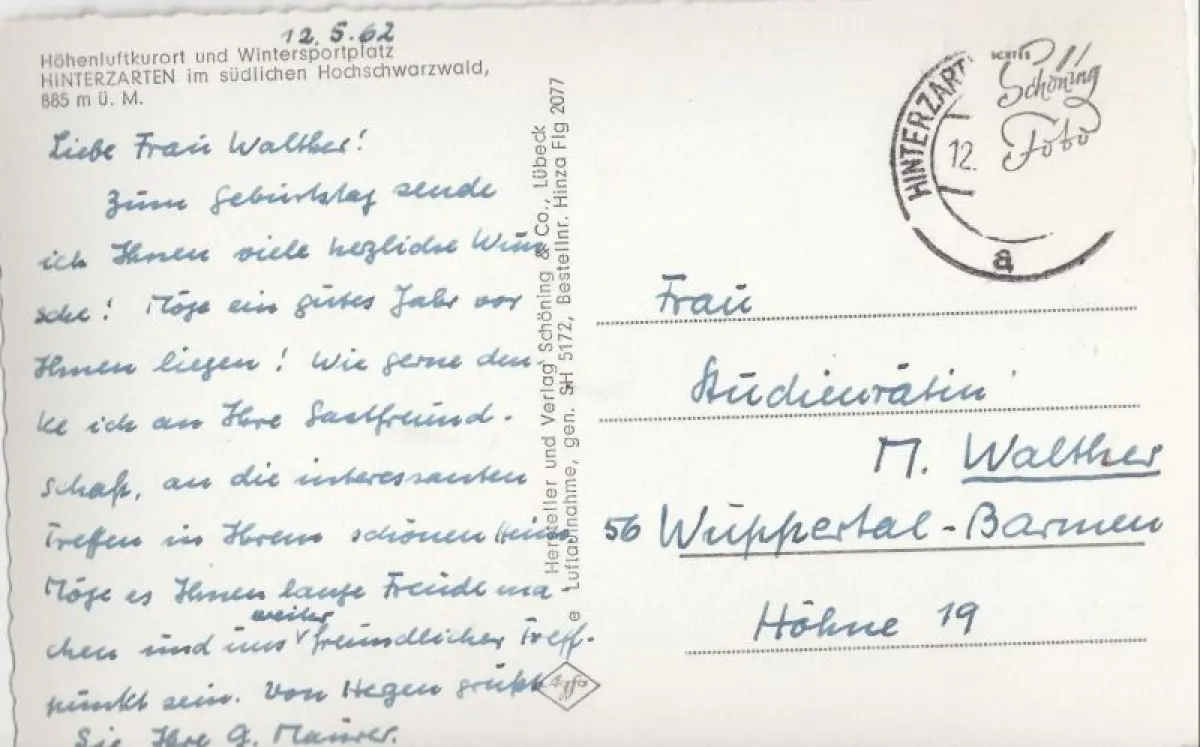 12.5.62
Höhenluftkurort und Wintersportplatz
HINTERZARTEN im südlichen Hochschwarzwald,
885 m ü. M.
Liebe Frau Walther!
Zum Geburtstag sende
ich Ihnen viele herzliche Wün
sche! Möge ein gutes Jahr vor
Ihnen liegen! Wie gerne den-
ke ich an Ihre Gastfreund-
schaft, an die interessanten
Treffen in Ihrem schönen Heim
Möge es Ihnen lange Freude ma
weiter
chen und uns freundlicher Treff-
punkt sein. Von Hegen grüßt
Sie Ihre G. Maurer.
Hersteller und Verlag Schöning & Co., Lübeck
Luftaufnahme, gen. SH 5172, Bestellnr. Hinza Flg 2077
Agfa
HINTERZART
12.
a
Schöning
Foto
Frau
Studienrätin
M. Walther
56 Wuppertal-Barmen
Höhne 19